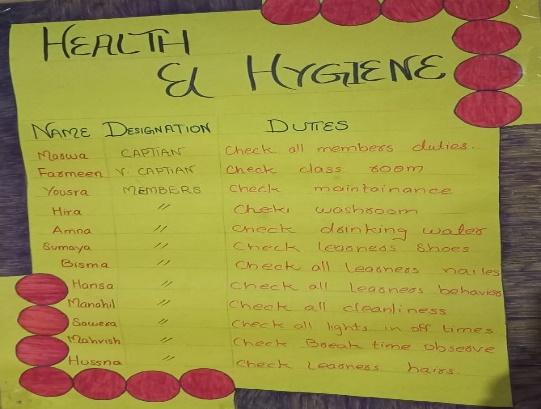 HEALTH
& HYGIENE
NAME DESIGNATION DUTIES
Maswa CAPTIAN Check all members duties.
Farmeen V. CAPTIAN Check class room
Yousra MEMBERS Check maintainance
Hira " Chek washroom
Amna " Check drinking water
Sumaya " Check Learners Shoes
Bisma " Check all Learners nailes
Hansa " Check all Learners behavior
Manahil " Check all cleanliness
Sawera " Check all lights in off times
Mahvish " Check Break time observe
Hussna " Check Learners hairs.